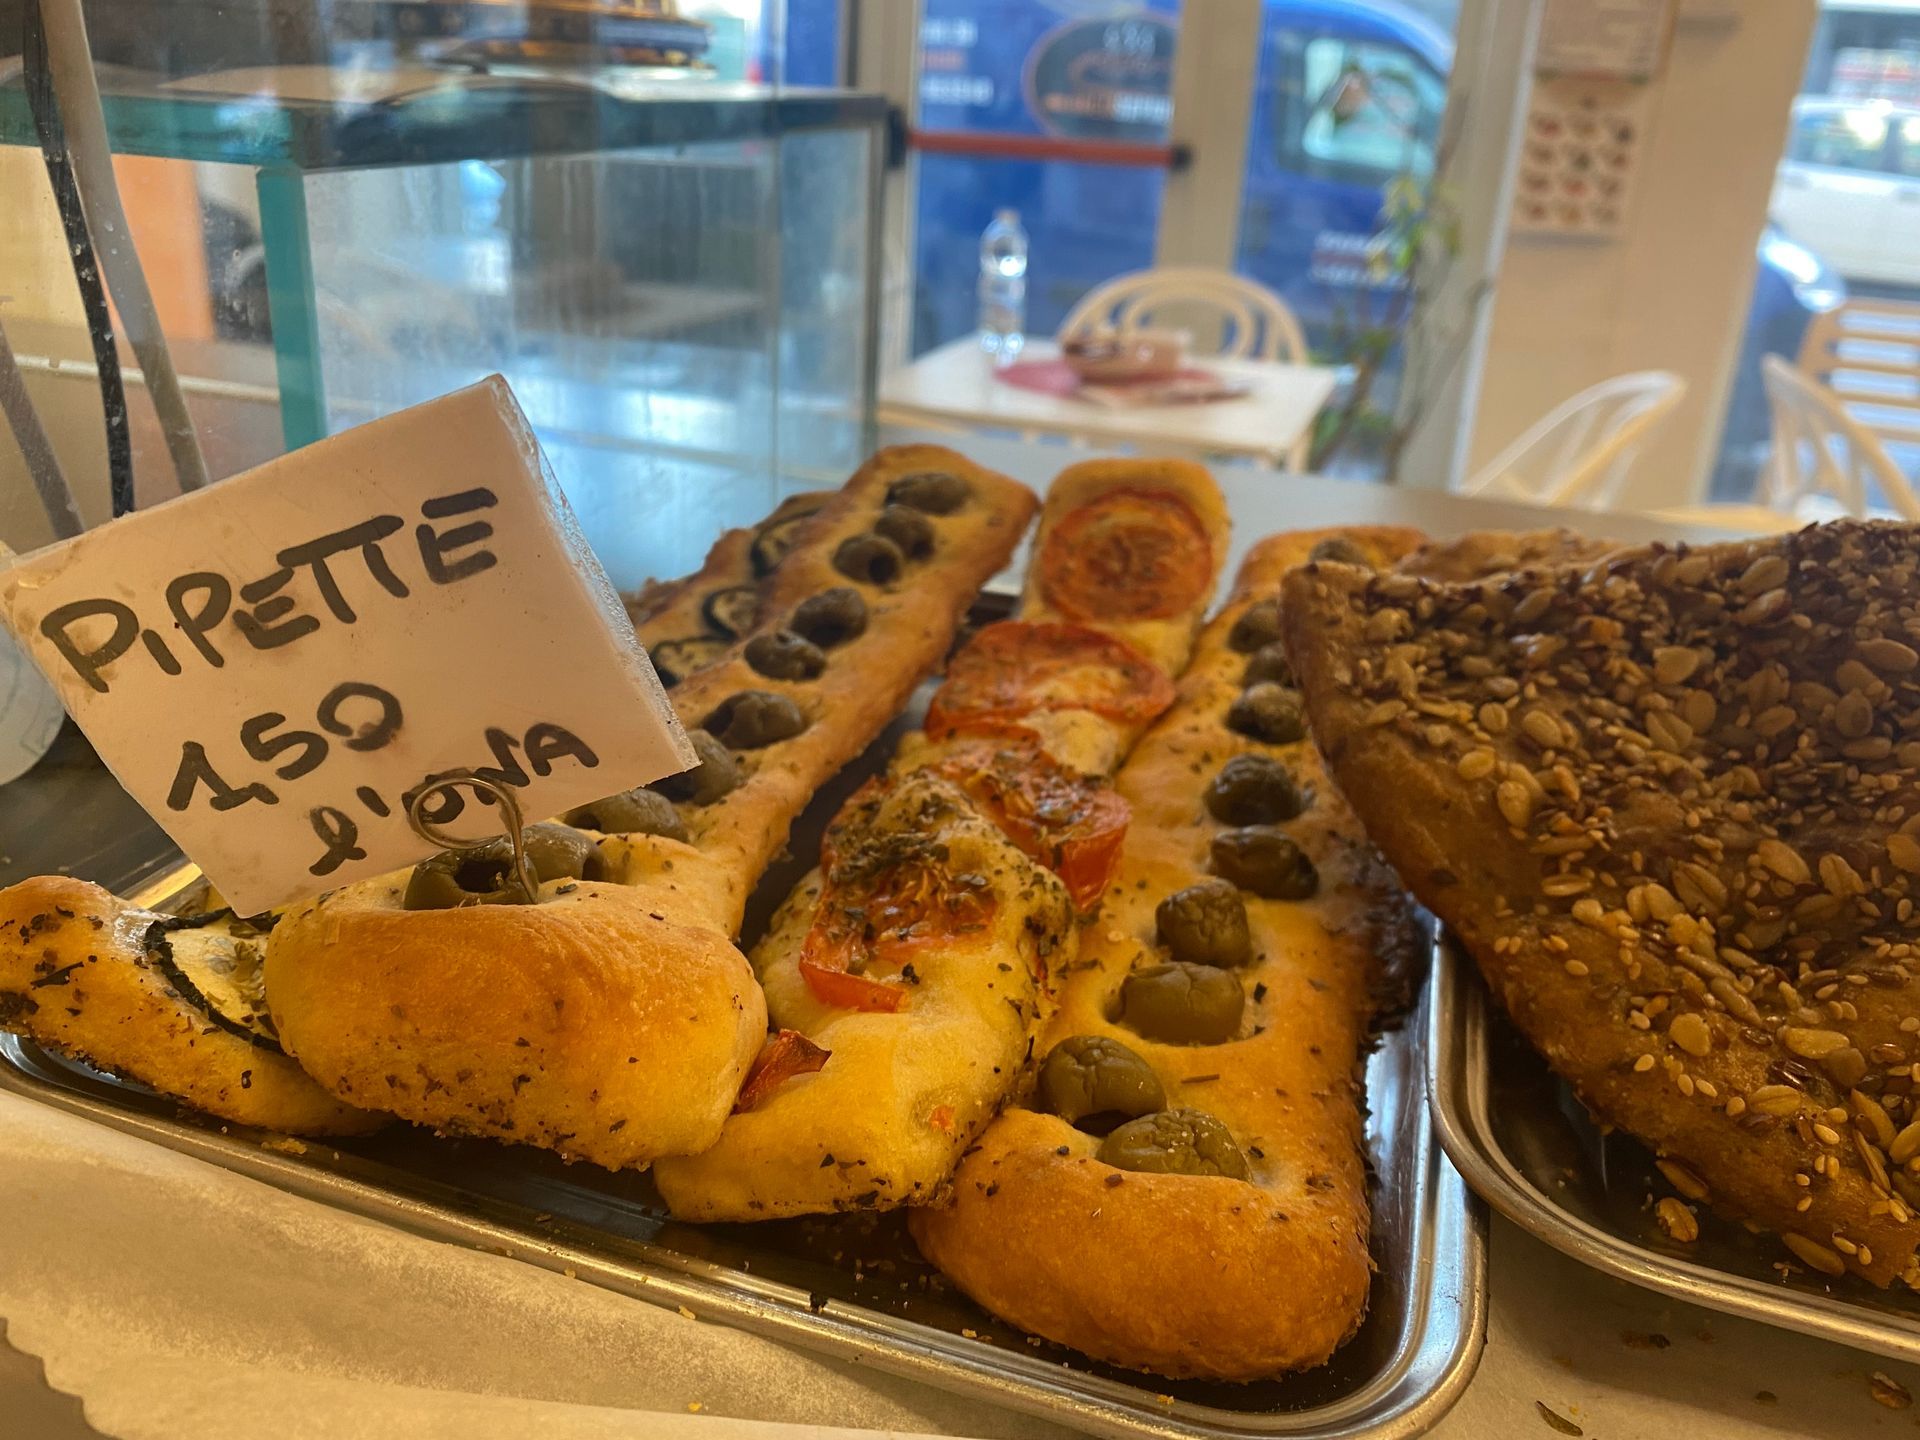 PIPETTE
1,50
l'UNA